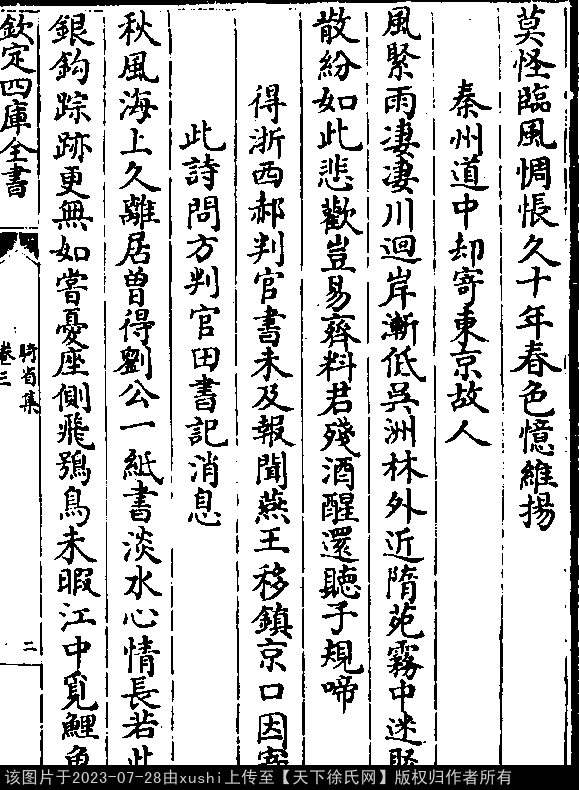 莫怪臨風惆悵久十年春色憶維揚
秦州道中却寄東京故人
風緊雨凄凄川迴岸漸低吳洲林外近隋苑霧中迷聚
散紛如此悲歡豈易齊料君殘酒醒還聽子規啼
得浙西郝判官書未及報聞燕王移鎮京口因寄
此詩問方判官田書記消息
秋風海上久離居曾得劉公一紙書淡水心情長若此
銀鈎踪跡更無如嘗憂座側飛鴞鳥未暇江中覓鯉魚
欽定四庫全書
騎省集
卷三
二
该图片于2023-07-28由xushi上传至【天下徐氏网】版权归作者所有